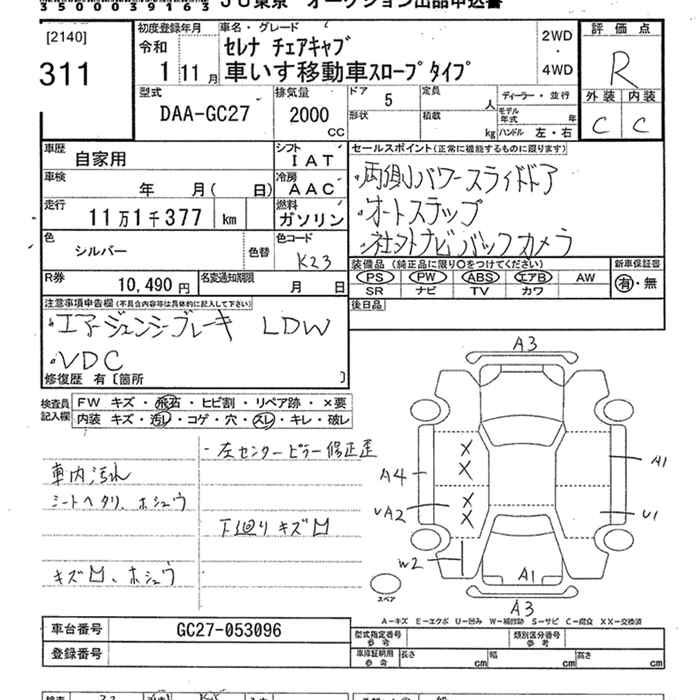 [2140]
311
初度登録年月
令和
1 11月
車名・グレード
セレナ チェアキャブ
車いす移動車スロープタイプ
2WD
・
4WD
評価点
R
外装 内装
C C
型式
DAA-GC27
排気量
2000
CC
ドア
5
定員
人
形状
積載
kg
ディーラー・並行
モデル年式
年
ハンドル 左・右
車歴
自家用
シフト
IAT
車検
年 月( 日)
冷房
AAC
走行
11万1千377 km
燃料
ガソリン
色
シルバー
色替
色コード
K23
R券
10,490 円
名変通知期限
月 日
セールスポイント(正常に機能するものに限ります)
・両側パワースライドドア
・オートステップ
・社外ナビ バックカメラ
装備品(純正品に限り○をつけてください)
PS PW ABS エアB AW
SR ナビ TV カワ
新車保証書
有・無
後日品
注意事項申告欄(不具合内容等は具体的に記入して下さい)
・エマージェンシーブレーキ LDW
・VDC
修復歴 有〔箇所 〕
検査員記入欄
FW キズ・飛石・ヒビ割・リペア跡・×要
内装 キズ・汚レ・コゲ・穴・スレ・キレ・破レ
・左センターピラー修正歪
車内汚れ
シートヘタリ、ホシュウ
下回りキズ凹
キズ凹、ホシュウ
A3
A4
A1
UA2
U1
W2
A1
A3
スペア
A-キズ E-エクボ U-凹み W-補修跡 S-サビ C-腐食 XX-交換済
車台番号
GC27-053096
登録番号
型式指定番号
参考
類別区分番号
参考
車庫証明用
参考
長さ cm 幅 cm 高さ cm